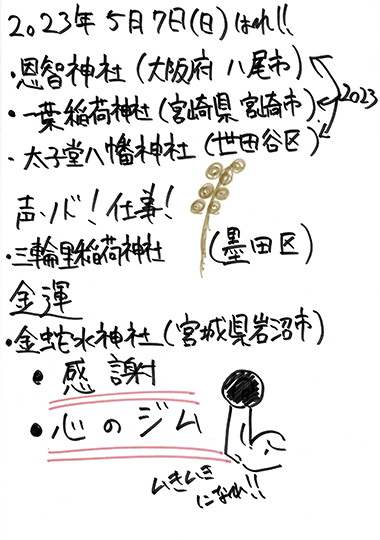 2023年5月7日(日)はれ!!
・恩智神社(大阪府 八尾市)
・一葉稲荷神社(宮崎県 宮崎市)
2023
・太子堂八幡神社(世田谷区)
声、ノド!仕事!
・三輪里稲荷神社 (墨田区)
金運
・金蛇水神社(宮城県岩沼市)
・感謝
・心のジム
いきいき
になれ!!